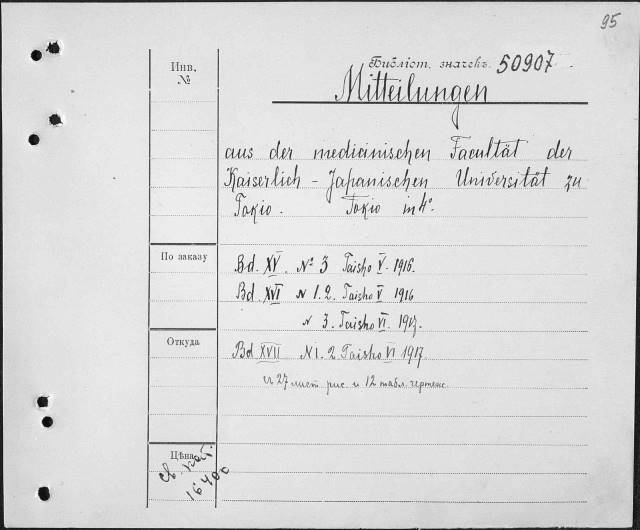 95
Инв. №
Библіот. значекъ. 50907.
Mitteilungen
aus der medicinischen Facultät der
Kaiserlich - Japanischen Universität zu
Tokio. Tokio in 4°.
По заказу
Bd. XV. № 3 Taisho V. 1916.
Bd. XVI N 1. 2. Taisho V 1916
N 3. Taisho VI. 1917.
Откуда
Bd XVII N 1. 2 Taisho VI 1917.
съ 27 лист. рис. и 12 табл. чертеж.
Цѣна
св. кат.